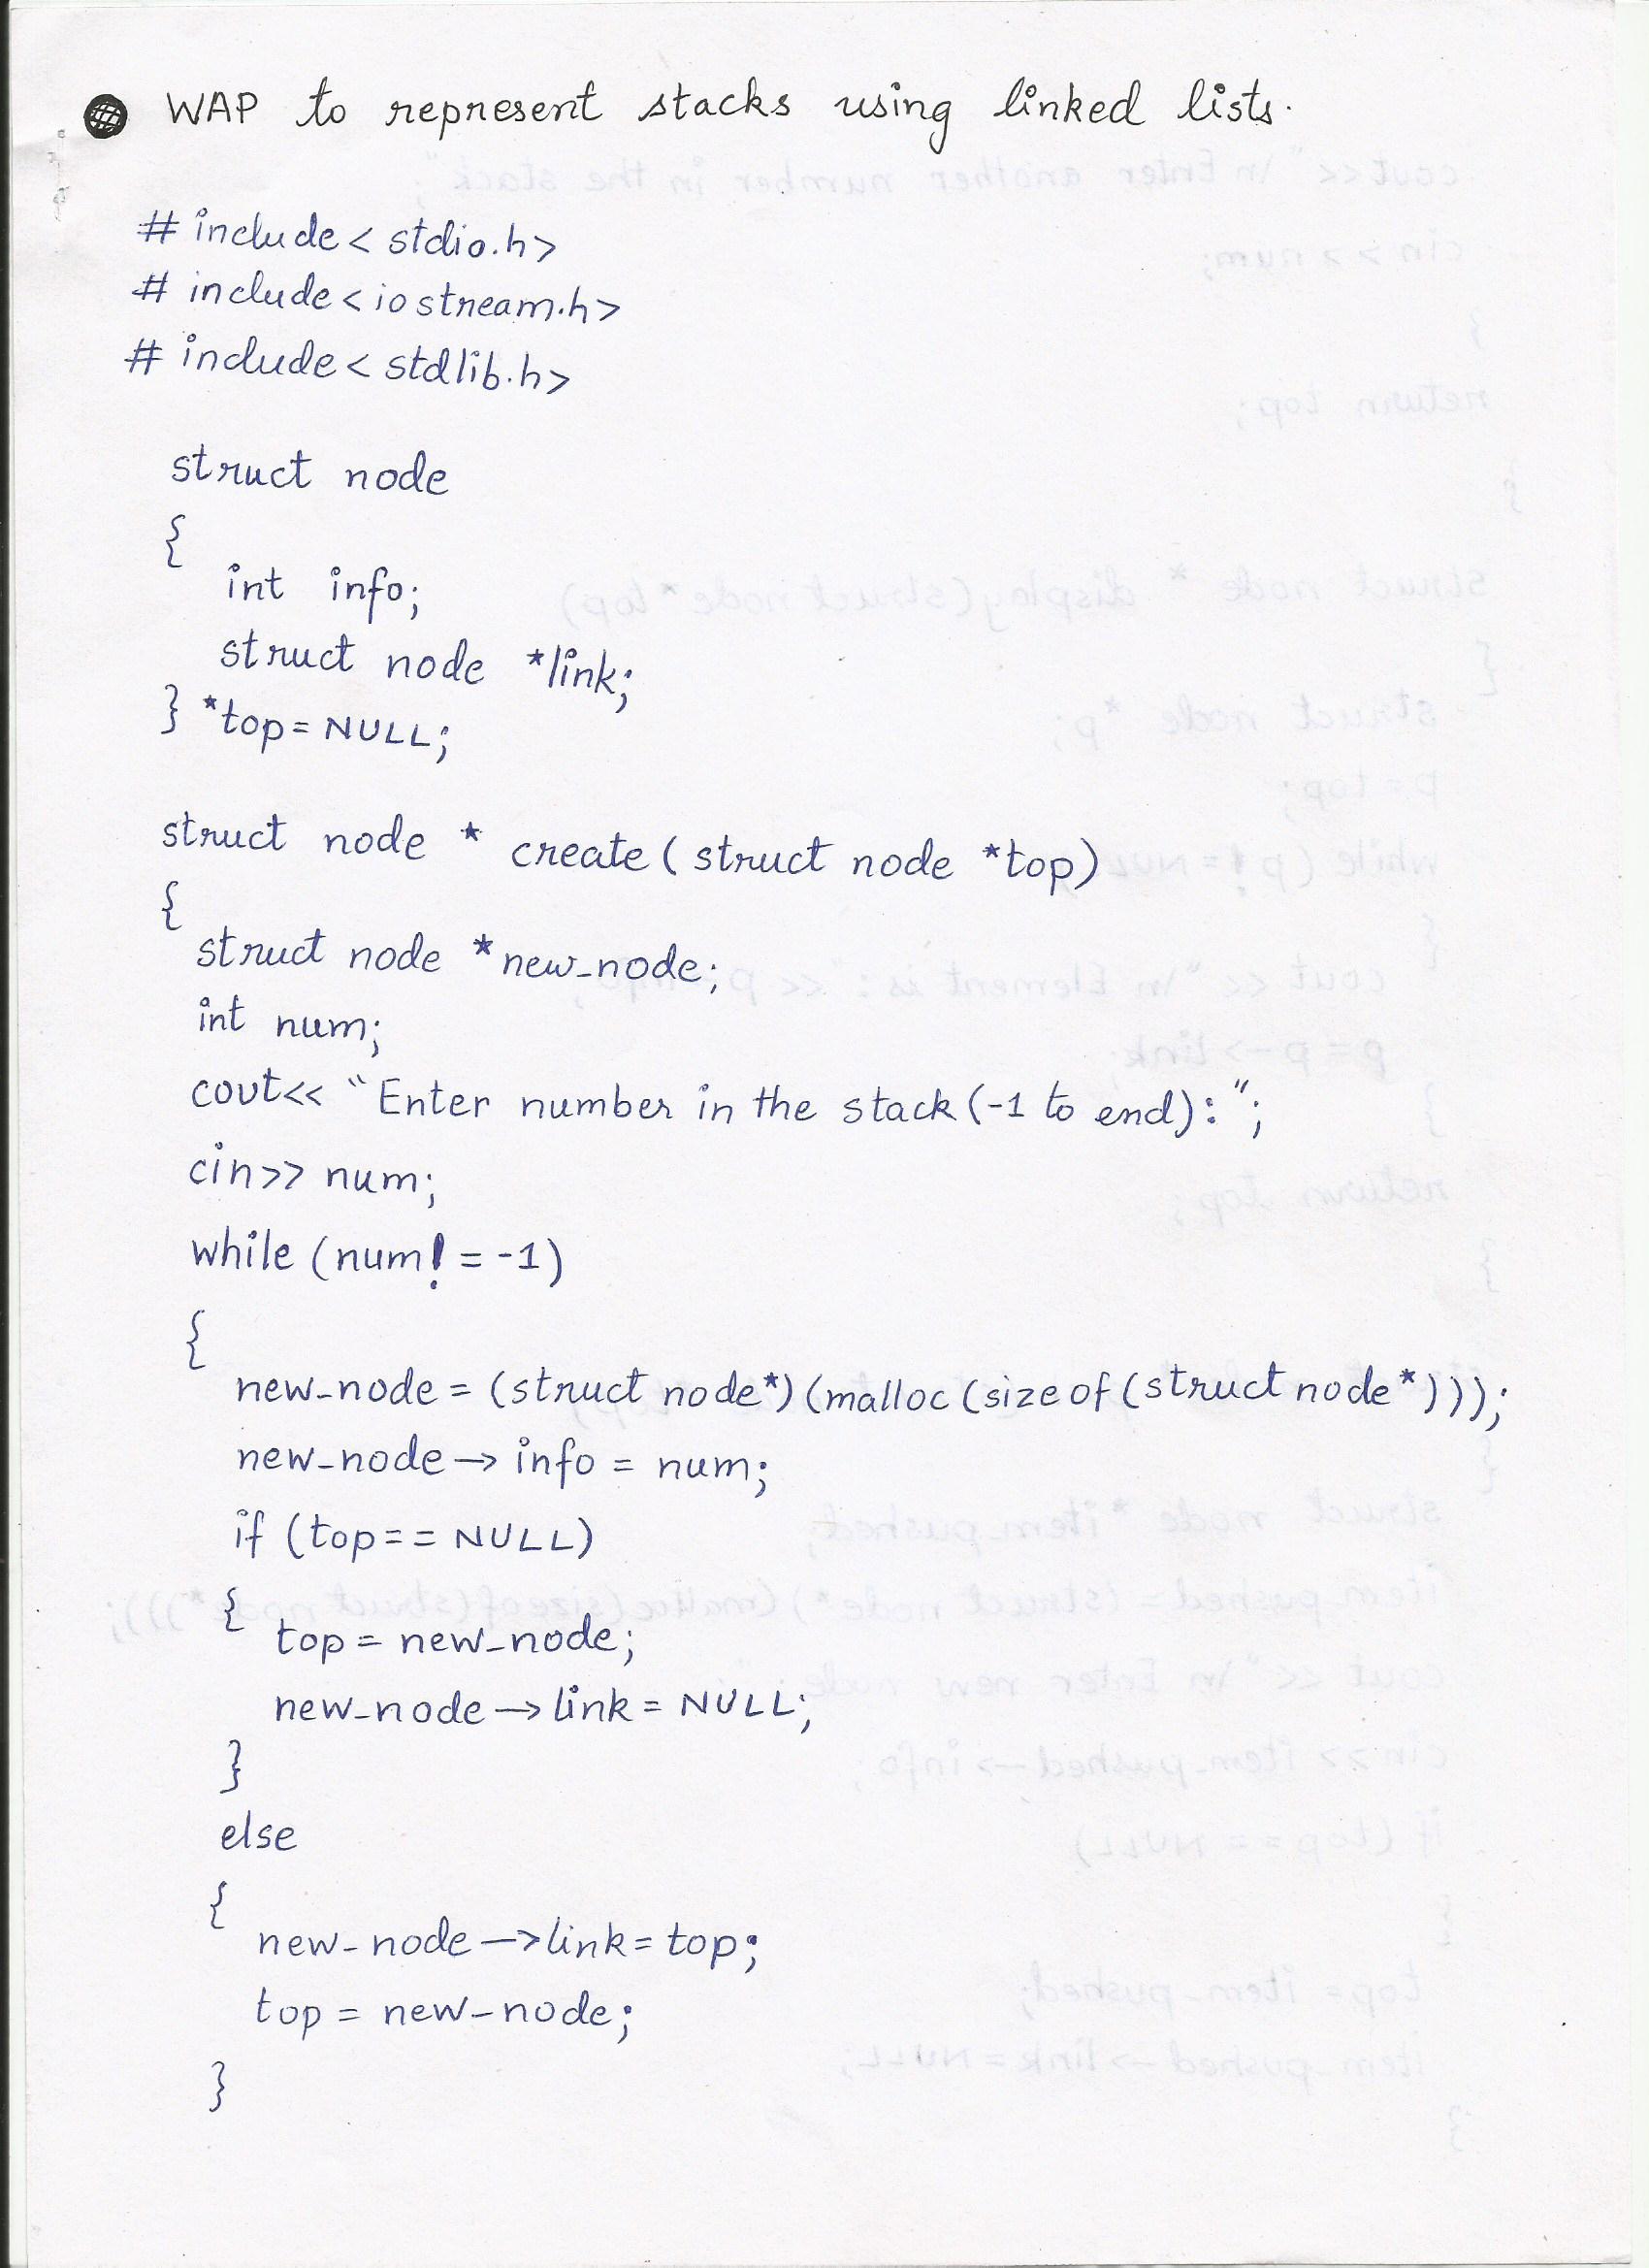 WAP to represent stacks using linked lists.
# include < stdio.h>
# include < iostream.h>
# include < stdlib.h>
struct node
{
int info;
struct node *link;
} *top = NULL;
struct node * create ( struct node *top)
{
struct node *new_node;
int num;
cout<< "Enter number in the stack (-1 to end) : ";
cin>> num;
while (num! = -1)
{
new_node = (struct node*) (malloc (sizeof (struct node*)));
new_node -> info = num;
if (top == NULL)
{ top = new_node;
new_node -> link = NULL;
}
else
{
new_node -> link = top;
top = new_node;
}